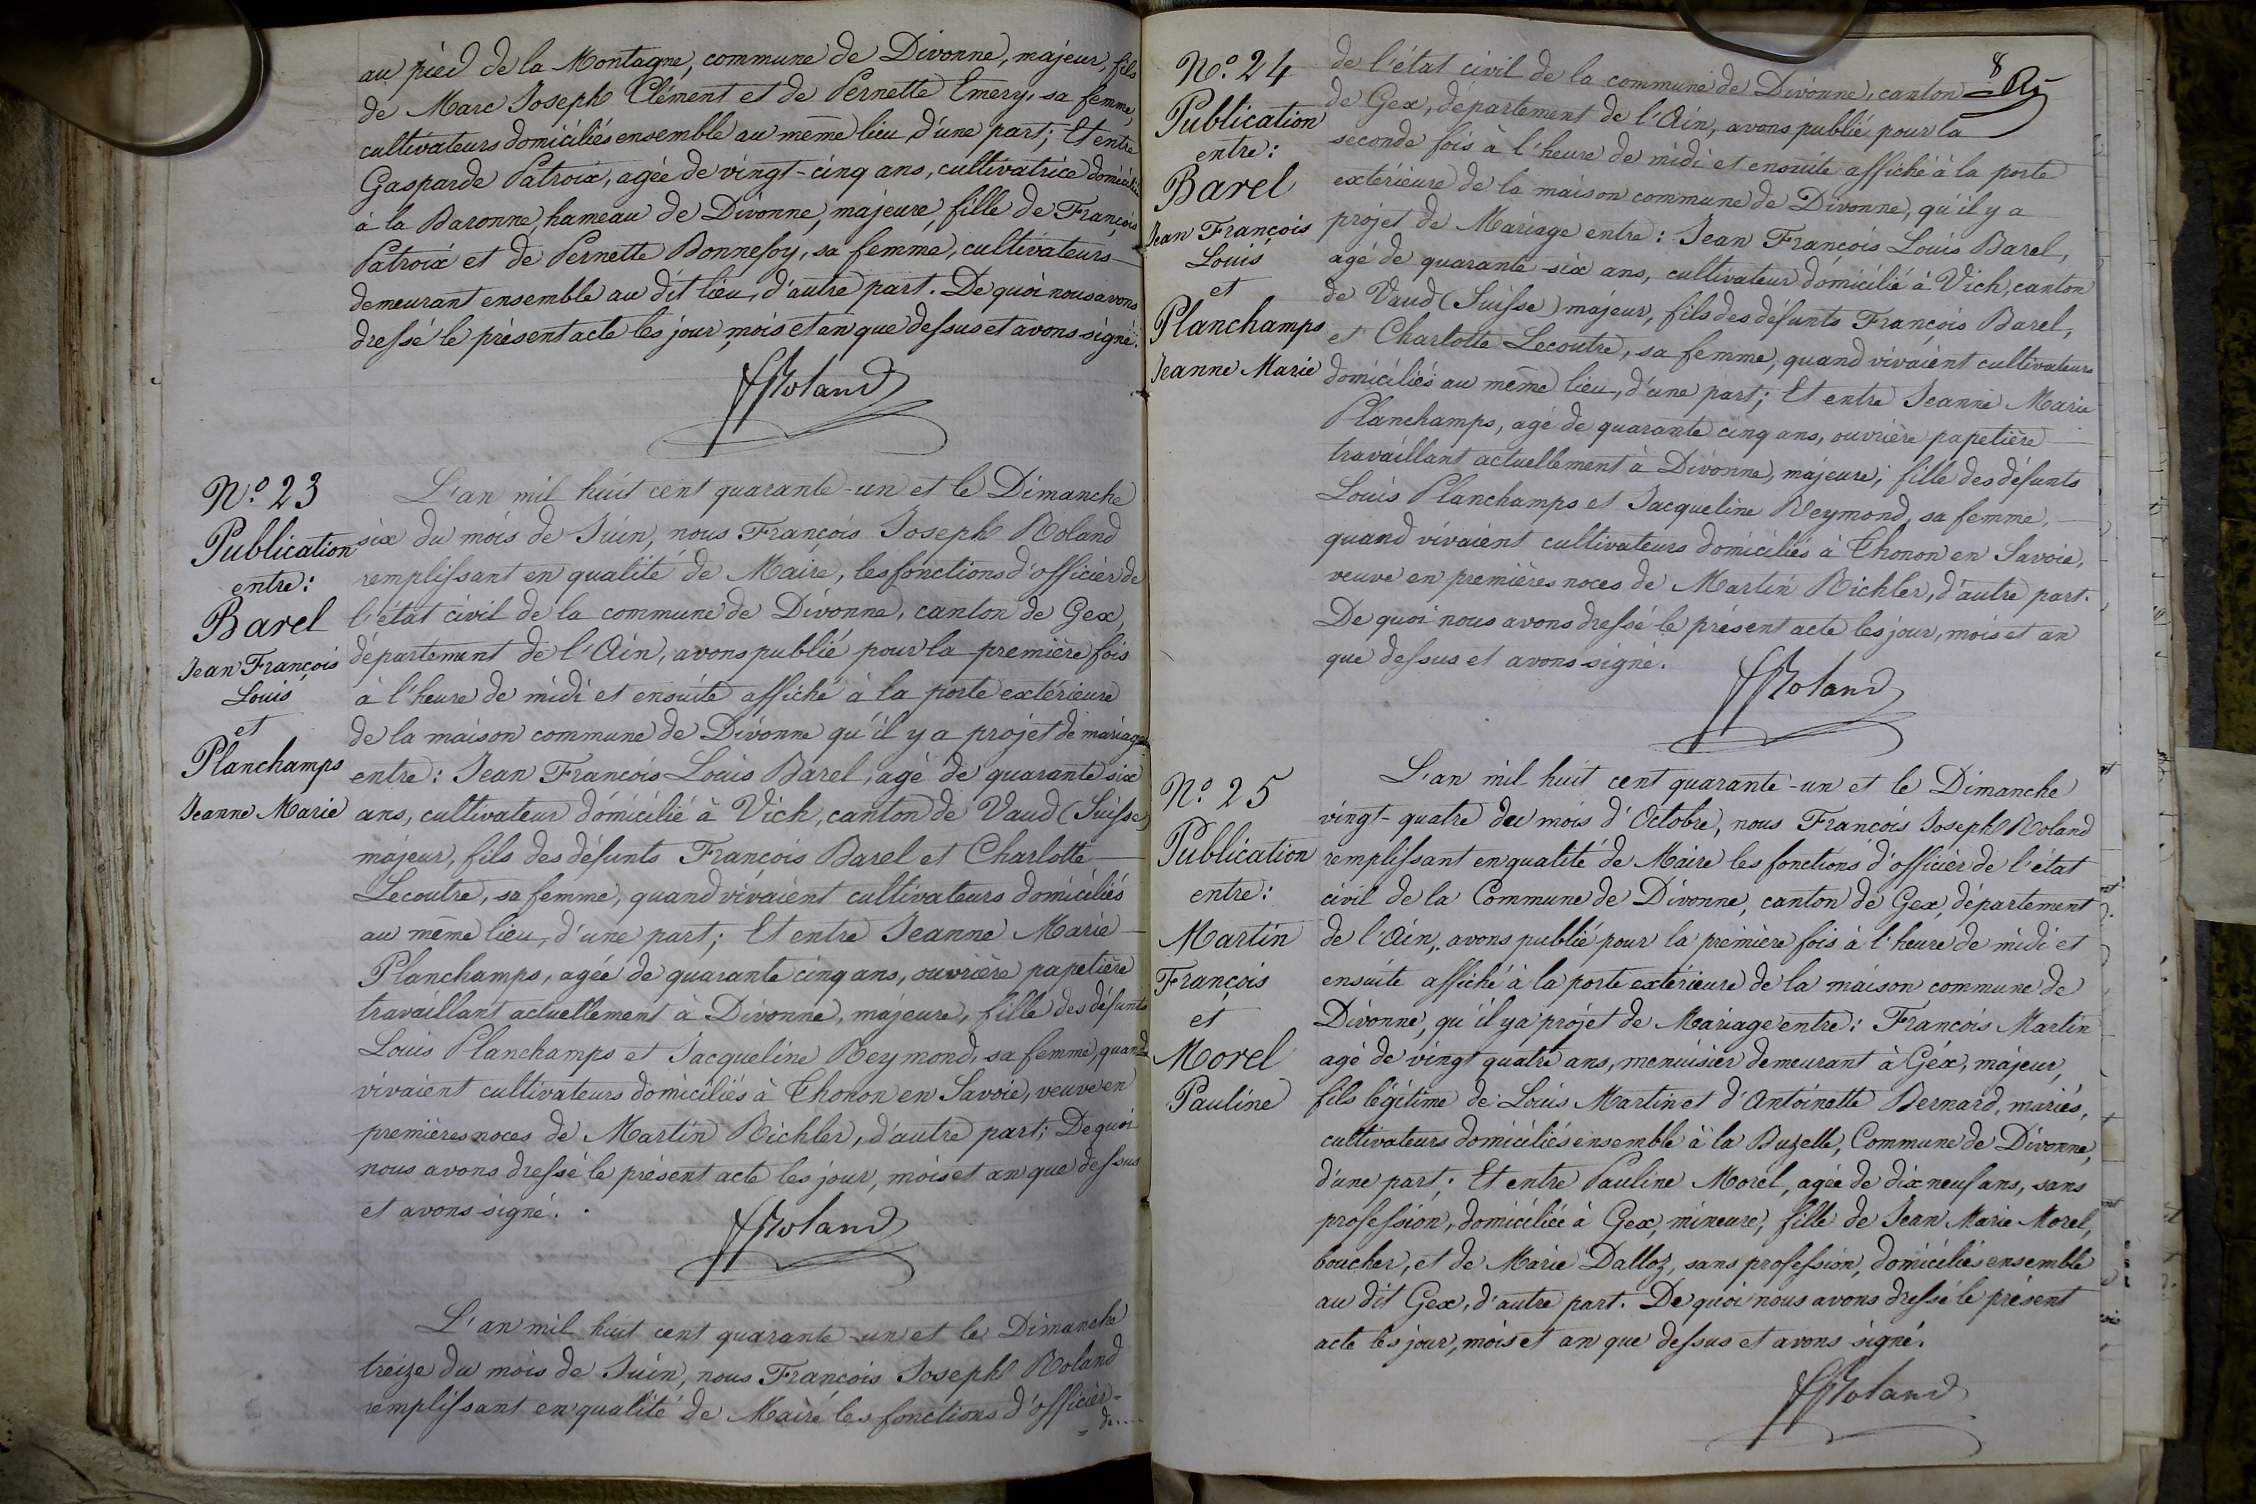 au pied de la Montagne, commune de Divonne, majeur, fils
de Marc Joseph Clément et de Pernette Emery, sa femme,
cultivateurs domiciliés ensemble au même lieu, d'une part; Et entre
Gasparde Patroix, agée de vingt-cinq ans, cultivatrice domiciliée
à la Baronne, hameau de Divonne, majeure, fille de François
Patroix et de Pernette Bonnefoy, sa femme, cultivateurs
demeurant ensemble au dit lieu, d'autre part. De quoi nous avons
dressé le présent acte les jour, mois et an que dessus et avons signé.
FJRoland
N.º 23
Publication
entre:
Barel
Jean François
Louis
et
Planchamps
Jeanne Marie
L'an mil huit cent quarante-un et le Dimanche
six du mois de Juin, nous François Joseph Roland
remplissant en qualité de Maire, les fonctions d'officier de
l'état civil de la commune de Divonne, canton de Gex,
département de l'Ain, avons publié pour la première fois
à l'heure de midi et ensuite affiché à la porte extérieure
de la maison commune de Divonne qu'il y a projet de mariage
entre: Jean François Louis Barel, agé de quarante six
ans, cultivateur domicilié à Vich, canton de Vaud (Suisse)
majeur, fils des défunts François Barel et Charlotte
Lecoutre, sa femme, quand vivaient cultivateurs domiciliés
au même lieu, d'une part; Et entre Jeanne Marie
Planchamps, agée de quarante cinq ans, ouvrière papetière
travaillant actuellement à Divonne, majeure, fille des défunts
Louis Planchamps et Jacqueline Reymond, sa femme, quand
vivaient cultivateurs domiciliés à Thonon en Savoie, veuve en
premières noces de Martin Richler, d'autre part; De quoi
nous avons dressé le présent acte les jour, mois et an que dessus
et avons signé.
FJRoland
L'an mil huit cent quarante-un et le Dimanche
treize du mois de Juin, nous François Joseph Roland
remplissant en qualité de Maire les fonctions d'officier
= de....
8
N.º 24
Publication
entre:
Barel
Jean François
Louis
et
Planchamps
Jeanne Marie
de l'état civil de la commune de Divonne, canton
de Gex, département de l'Ain, avons publié pour la
seconde fois à l'heure de midi et ensuite affiché à la porte
extérieure de la maison commune de Divonne, qu'il y a
projet de Mariage entre: Jean François Louis Barel,
agé de quarante-six ans, cultivateur domicilié à Vich, canton
de Vaud (Suisse) majeur, fils des défunts François Barel,
et Charlotte Lecoutre, sa femme, quand vivaient cultivateurs
domiciliés au même lieu, d'une part; Et entre Jeanne Marie
Planchamps, agé de quarante cinq ans, ouvrière papetière
travaillant actuellement à Divonne, majeure, fille des défunts
Louis Planchamps et Jacqueline Reymond, sa femme,
quand vivaient cultivateurs domiciliés à Thonon en Savoie,
veuve en premières noces de Martin Richler, d'autre part.
De quoi nous avons dressé le présent acte les jour, mois et an
que dessus et avons signé.
FJRoland
N.º 25
Publication
entre:
Martin
François
et
Morel
Pauline
L'an mil huit cent quarante-un et le Dimanche
vingt-quatre du mois d'Octobre, nous François Joseph Roland
remplissant en qualité de Maire les fonctions d'officier de l'état
civil de la Commune de Divonne, canton de Gex, département
de l'Ain, avons publié pour la première fois à l'heure de midi et
ensuite affiché à la porte extérieure de la maison commune de
Divonne, qu'il y a projet de Mariage entre: François Martin
agé de vingt quatre ans, menuisier demeurant à Gex, majeur,
fils légitime de Louis Martin et d'Antoinette Bernard, mariés,
cultivateurs domiciliés ensemble à la Buzelle, Commune de Divonne,
d'une part; Et entre Pauline Morel, agée de dix neuf ans, sans
profession, domiciliée à Gex, mineure, fille de Jean Marie Morel,
boucher, et de Marie Dalloz, sans profession, domiciliés ensemble
au dit Gex, d'autre part. De quoi nous avons dressé le présent
acte les jour, mois et an que dessus et avons signé.
FJRoland